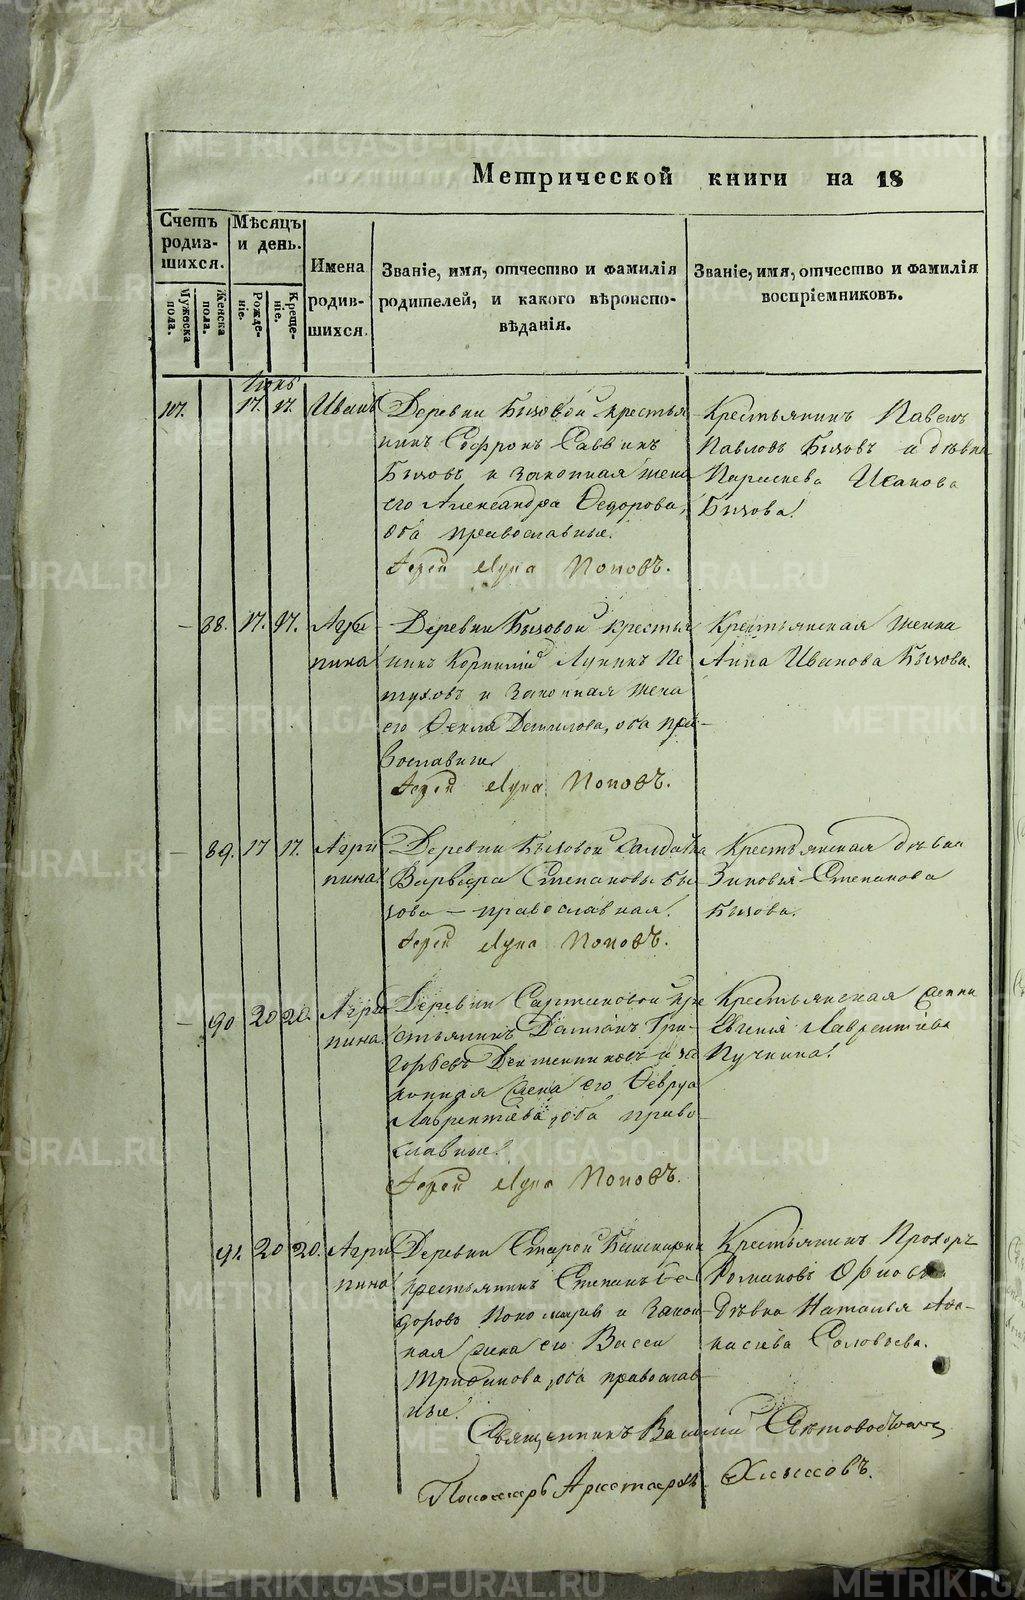 Метрической книги на 18
Счетъ родив-шихся.
Мужеска пола.
Женска пола.
Мѣсяцъ и день.
Рожде-ніе.
Креще-ніе.
Имена родив-шихся.
Званіе, имя, отчество и фамилія
родителей, и какого вѣроиспо-
вѣданія.
Званіе, имя, отчество и фамилія
воспріемниковъ.
Іюнь
107. 17. 17. Иванъ
Деревни Бызовой крестья
нинъ Софронъ Саввинъ
Бызовъ и законная жена
его Александра Ѳедорова,
оба православные.
Іерей Лука Поповъ.
Крестьянинъ Павелъ
Павловъ Бызовъ и дѣвка
Параскева Исакова
Бызова.
88. 17. 17. Агри
пина
Деревни Бызовой крестья
нинъ Корнилій Лукинъ Пе
туховъ и законная жена
его Ѳекла Данилова, оба пра-
вославные
Іерей Лука Поповъ.
Крестьянская жонка
Анна Иванова Бызова.
89. 17 17. Агри
пина
Деревни Бызовой солдатка
Варвара Степанова Бы
зова - православная.
Іерей Лука Поповъ.
Крестьянская дѣвка
Зиновья Степанова
Бызова.
90 20 20. Агри
пина
Деревни Сартаковой кре
стьянинъ Даміанъ Гри-
горьевъ и за
конная жена его Ѳевруа
Лаврентіева, оба право-
славные.
Іерей Лука Поповъ.
Крестьянская жонка
Евгенія Лаврентіева
Пучкина.
91. 20 20. Агри
пина
Деревни Старой Башкарки
крестьянинъ Степанъ Ѳе
доровъ Пономаревъ и закон-
ная жена его Васса
Трифонова, оба православ-
ные.
Крестьянинъ Прохоръ
Романовъ
Дѣвка Наталья Аѳа-
насьева Соловьева.
Священникъ Василій
Пономарь Аристархъ Хлыновъ.
METRIKI.GASO-URAL.RU